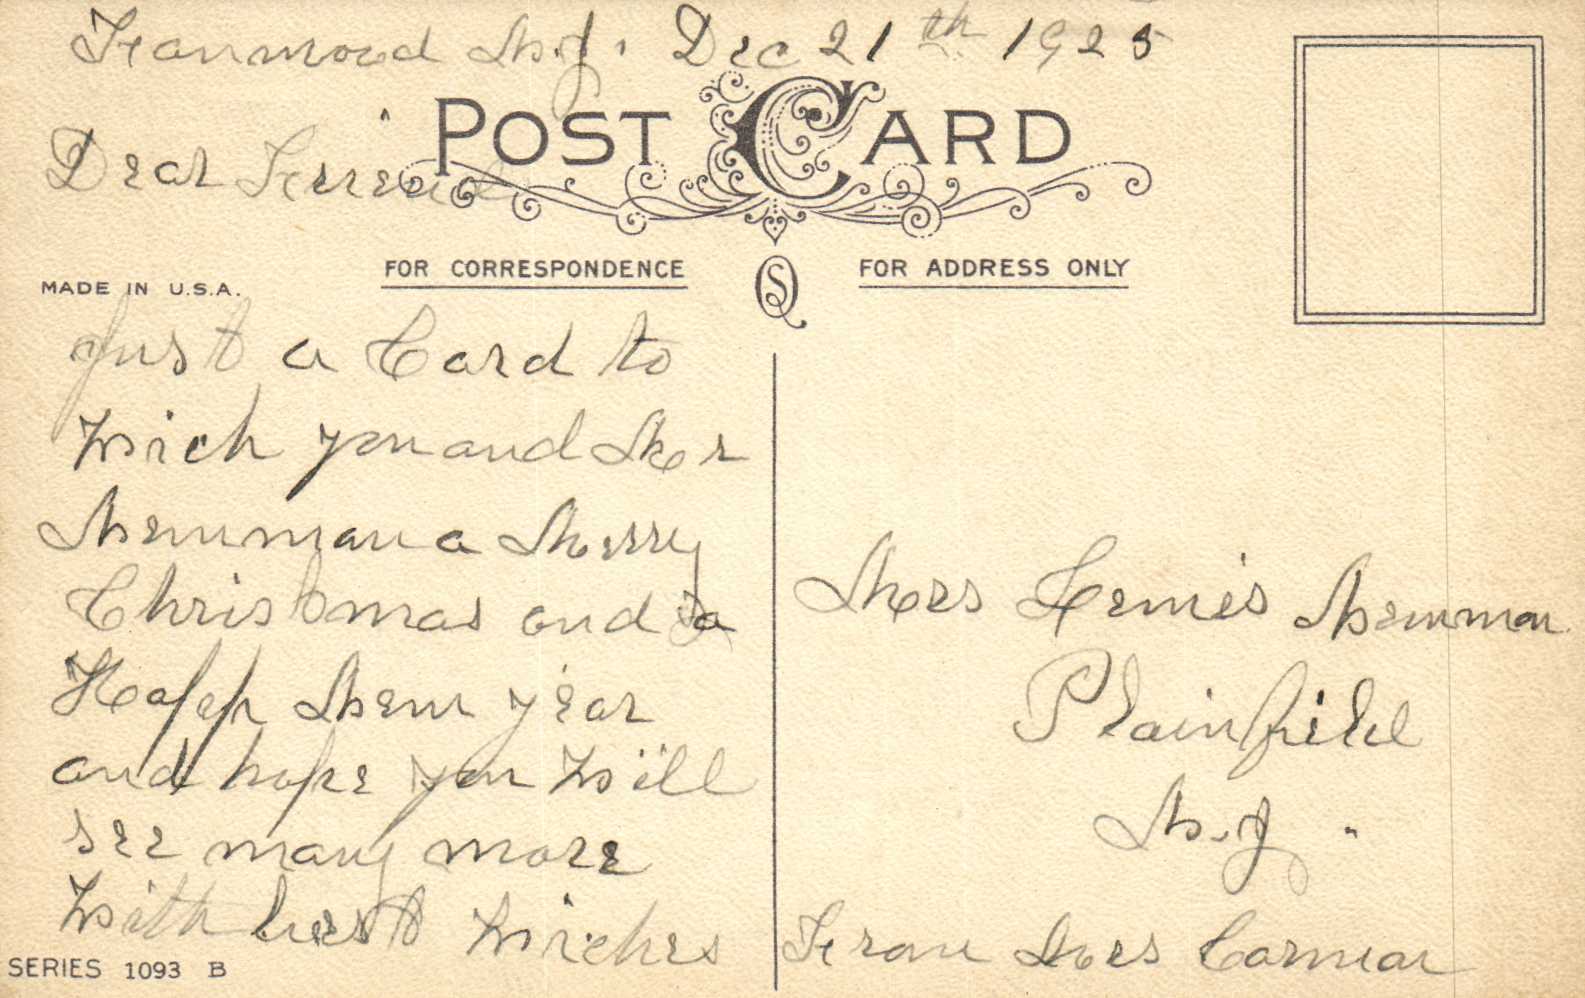 Fanwood N.J. Dec 21th 1925
Dear Friend
POST CARD
FOR CORRESPONDENCE
FOR ADDRESS ONLY
MADE IN U.S.A.
Just a Card to
Wich you and Mr
Newman a Merry
Christmas and a
Happy New year
and hope you Will
see many more
With best Wiches
SERIES 1093 B
Mrs Newman
Plainfield
N.J.
From Mrs